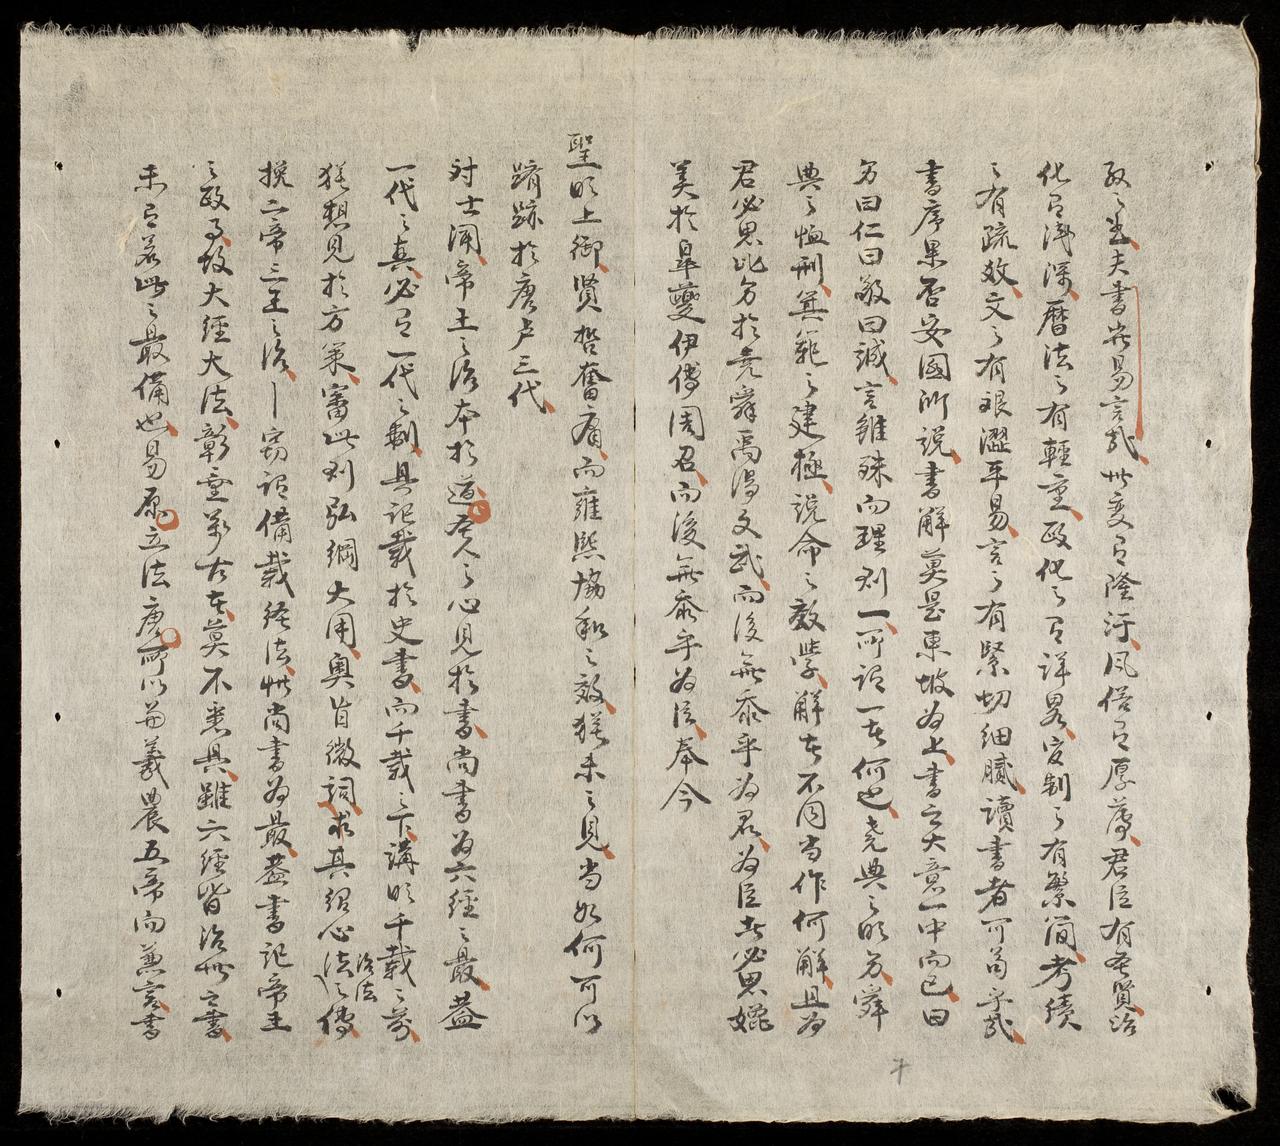 書豈易言哉世變有隆汙風俗有厚薄君臣有聖賢治
化有淺深曆法之有輕重政化之有詳畧官制之有繁簡考績
之有疏數文之有艱澀平易言之有緊切細膩讀書者可苟乎哉
書序果否安國所說書解莫是東坡為上書之大意一中而已曰
明曰仁曰敬曰誠言雖殊而理則一所謂一者何也堯典之明明舜
典之恤刑箕範之建極說命之教學解者不同當作何解且為
君必思比方於堯舜禹湯文武而後無忝乎為君為臣者必思媲
美於皐夔伊傅周召而後無忝乎為臣奉今
聖明上御賢哲奮庸而雍熙協和之效猶未之見當如何可以
躋跡於唐虞三代
對士聞帝王之治本於道聖人之心見於書尚書為六經之最蓋
一代之興必有一代之制具記載於史書而千載之下講明千載之前
猶想見於方策審此則弘綱大用奧旨微詞求其紹心法之傳
治法
挽二帝三王之治 竊謂備載治法惟尚書為最蓋書記帝王
之政事故大經大法彰垂萬古者莫不悉具雖六經皆治世之書
未有若此之最備也易原立法唐所以前羲農五帝而兼言書